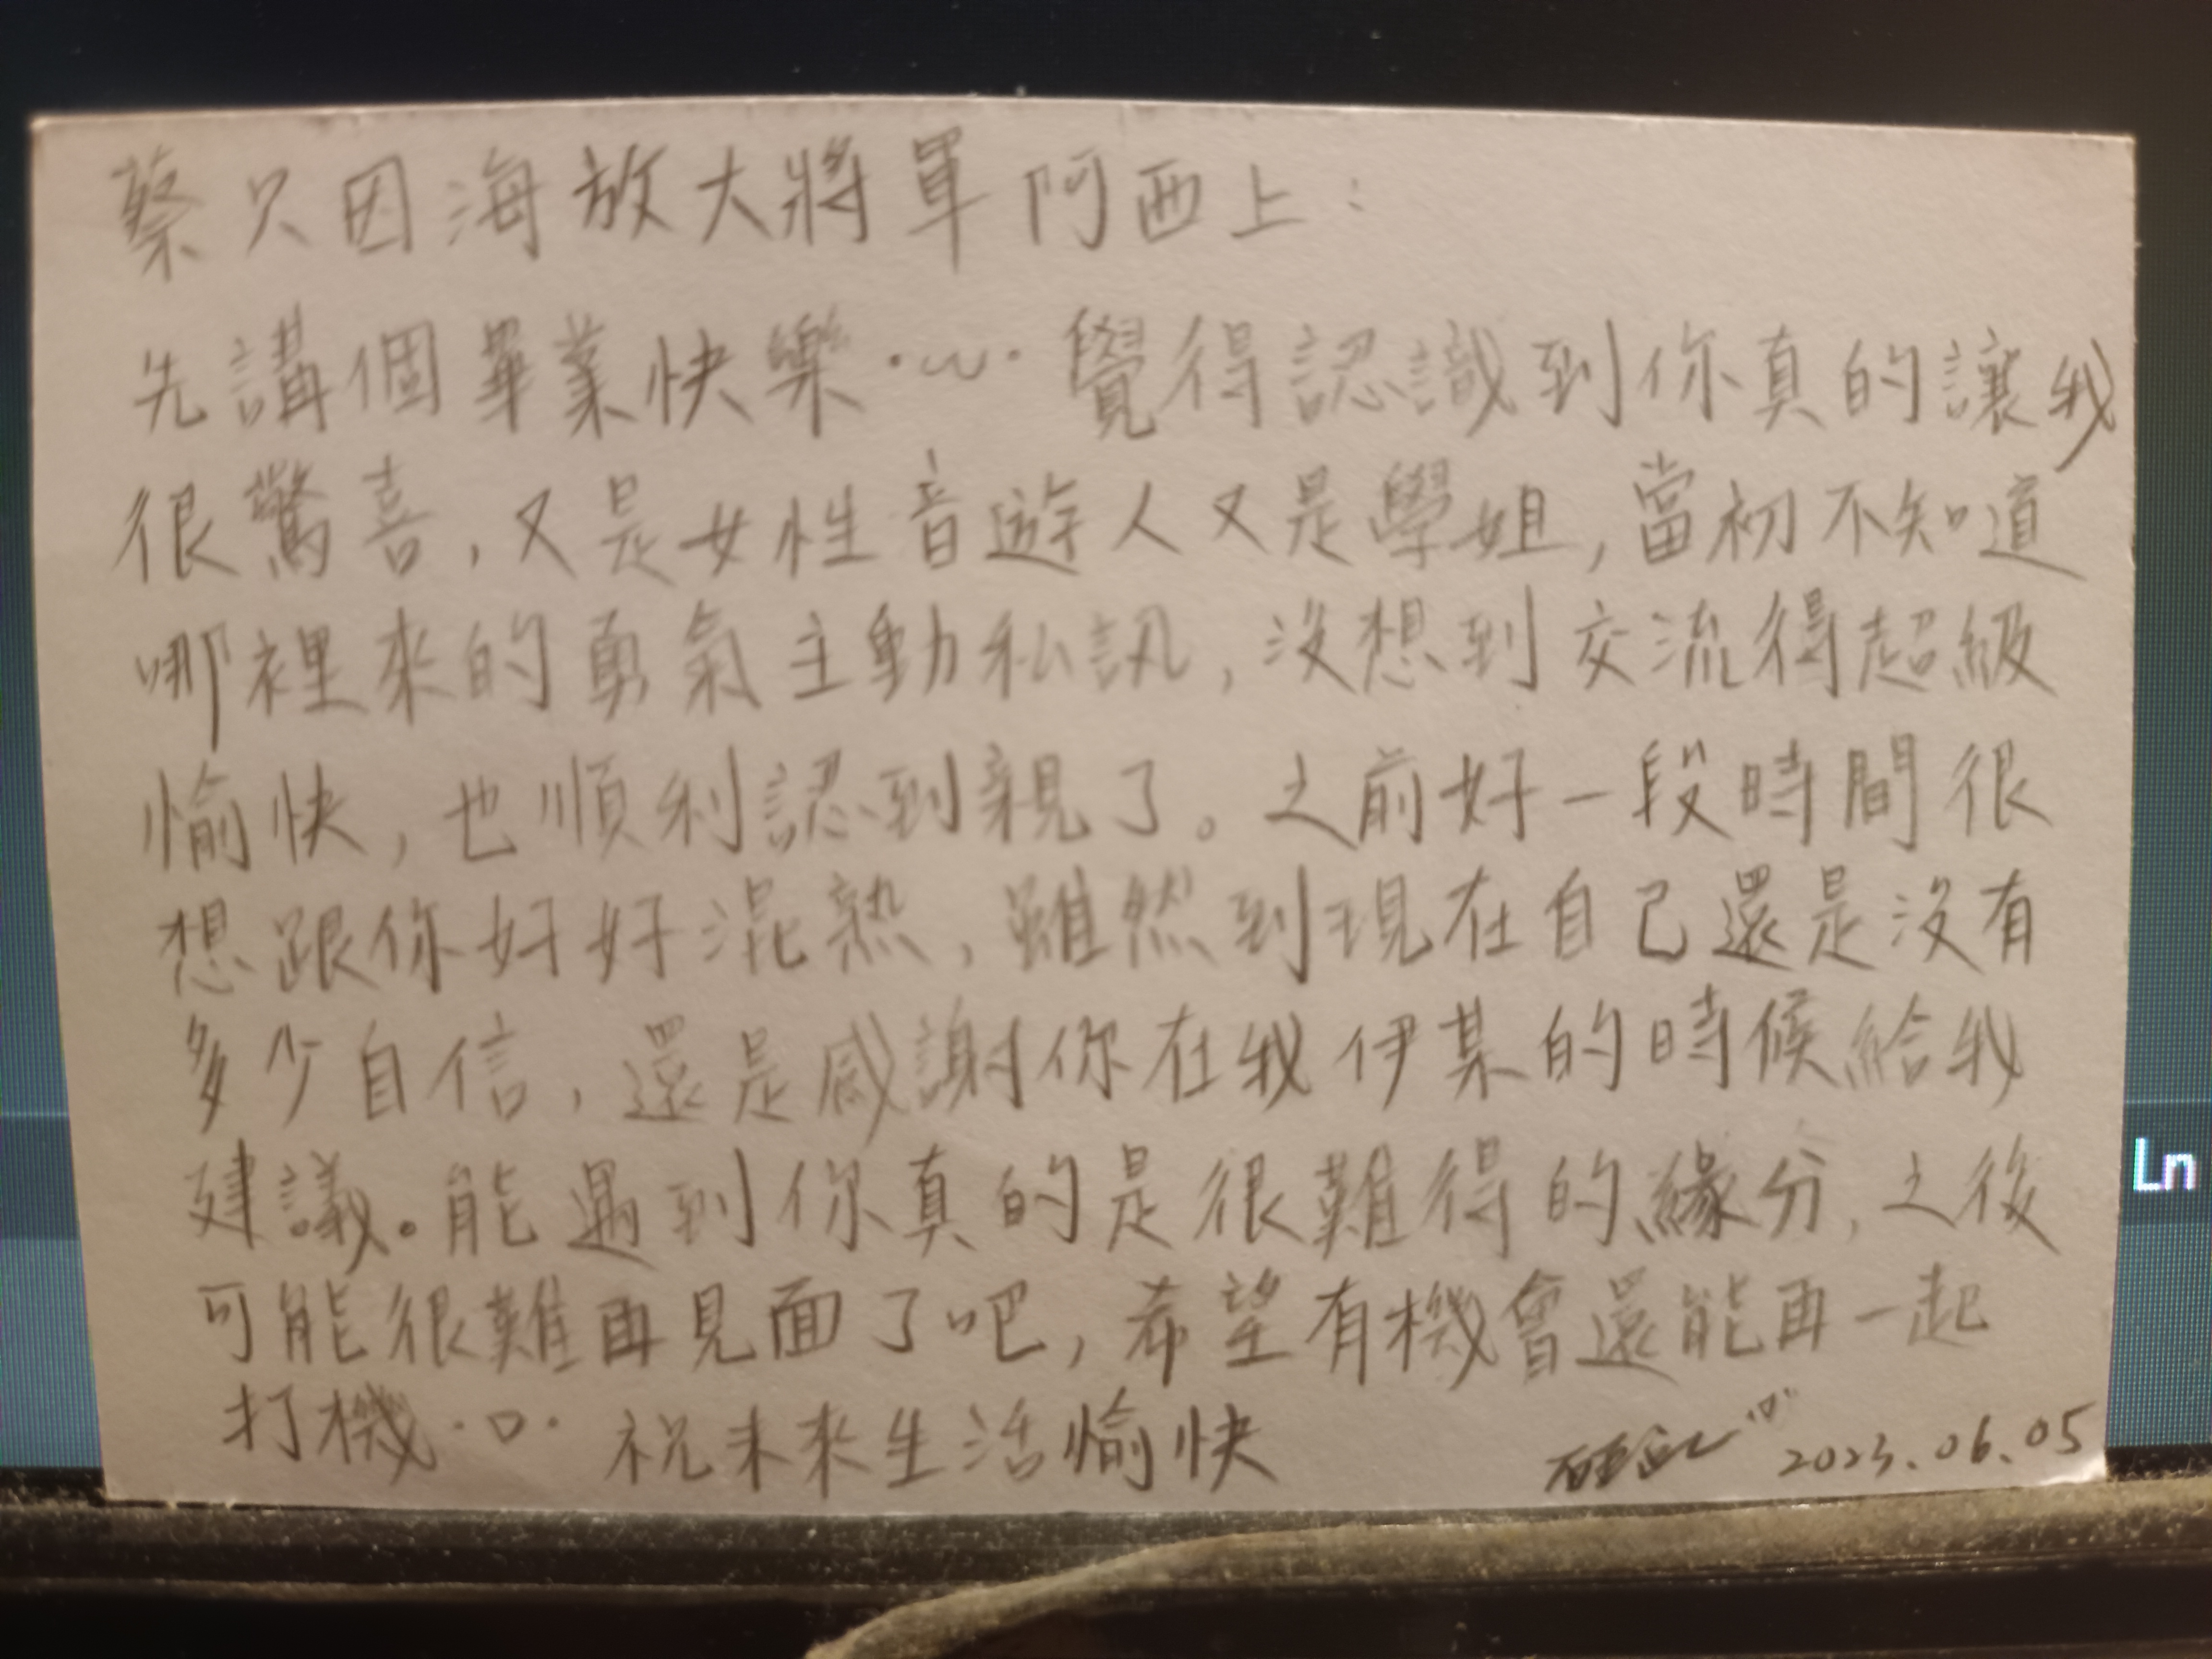 蔡只因海放大將軍阿西上：
先講個畢業快樂·ω· 覺得認識到你真的讓我
很驚喜，又是女性音遊人又是學姐，當初不知道
哪裡來的勇氣主動私訊，沒想到交流得超級
愉快，也順利認到親了。之前好一段時間很
想跟你好好混熟，雖然到現在自己還是沒有
多少自信，還是感謝你在我伊某的時候給我
建議。能遇到你真的是很難得的緣分，之後
可能很難再見面了吧，希望有機會還能再一起
打機·口· 祝未來生活愉快
2023.06.05
Ln